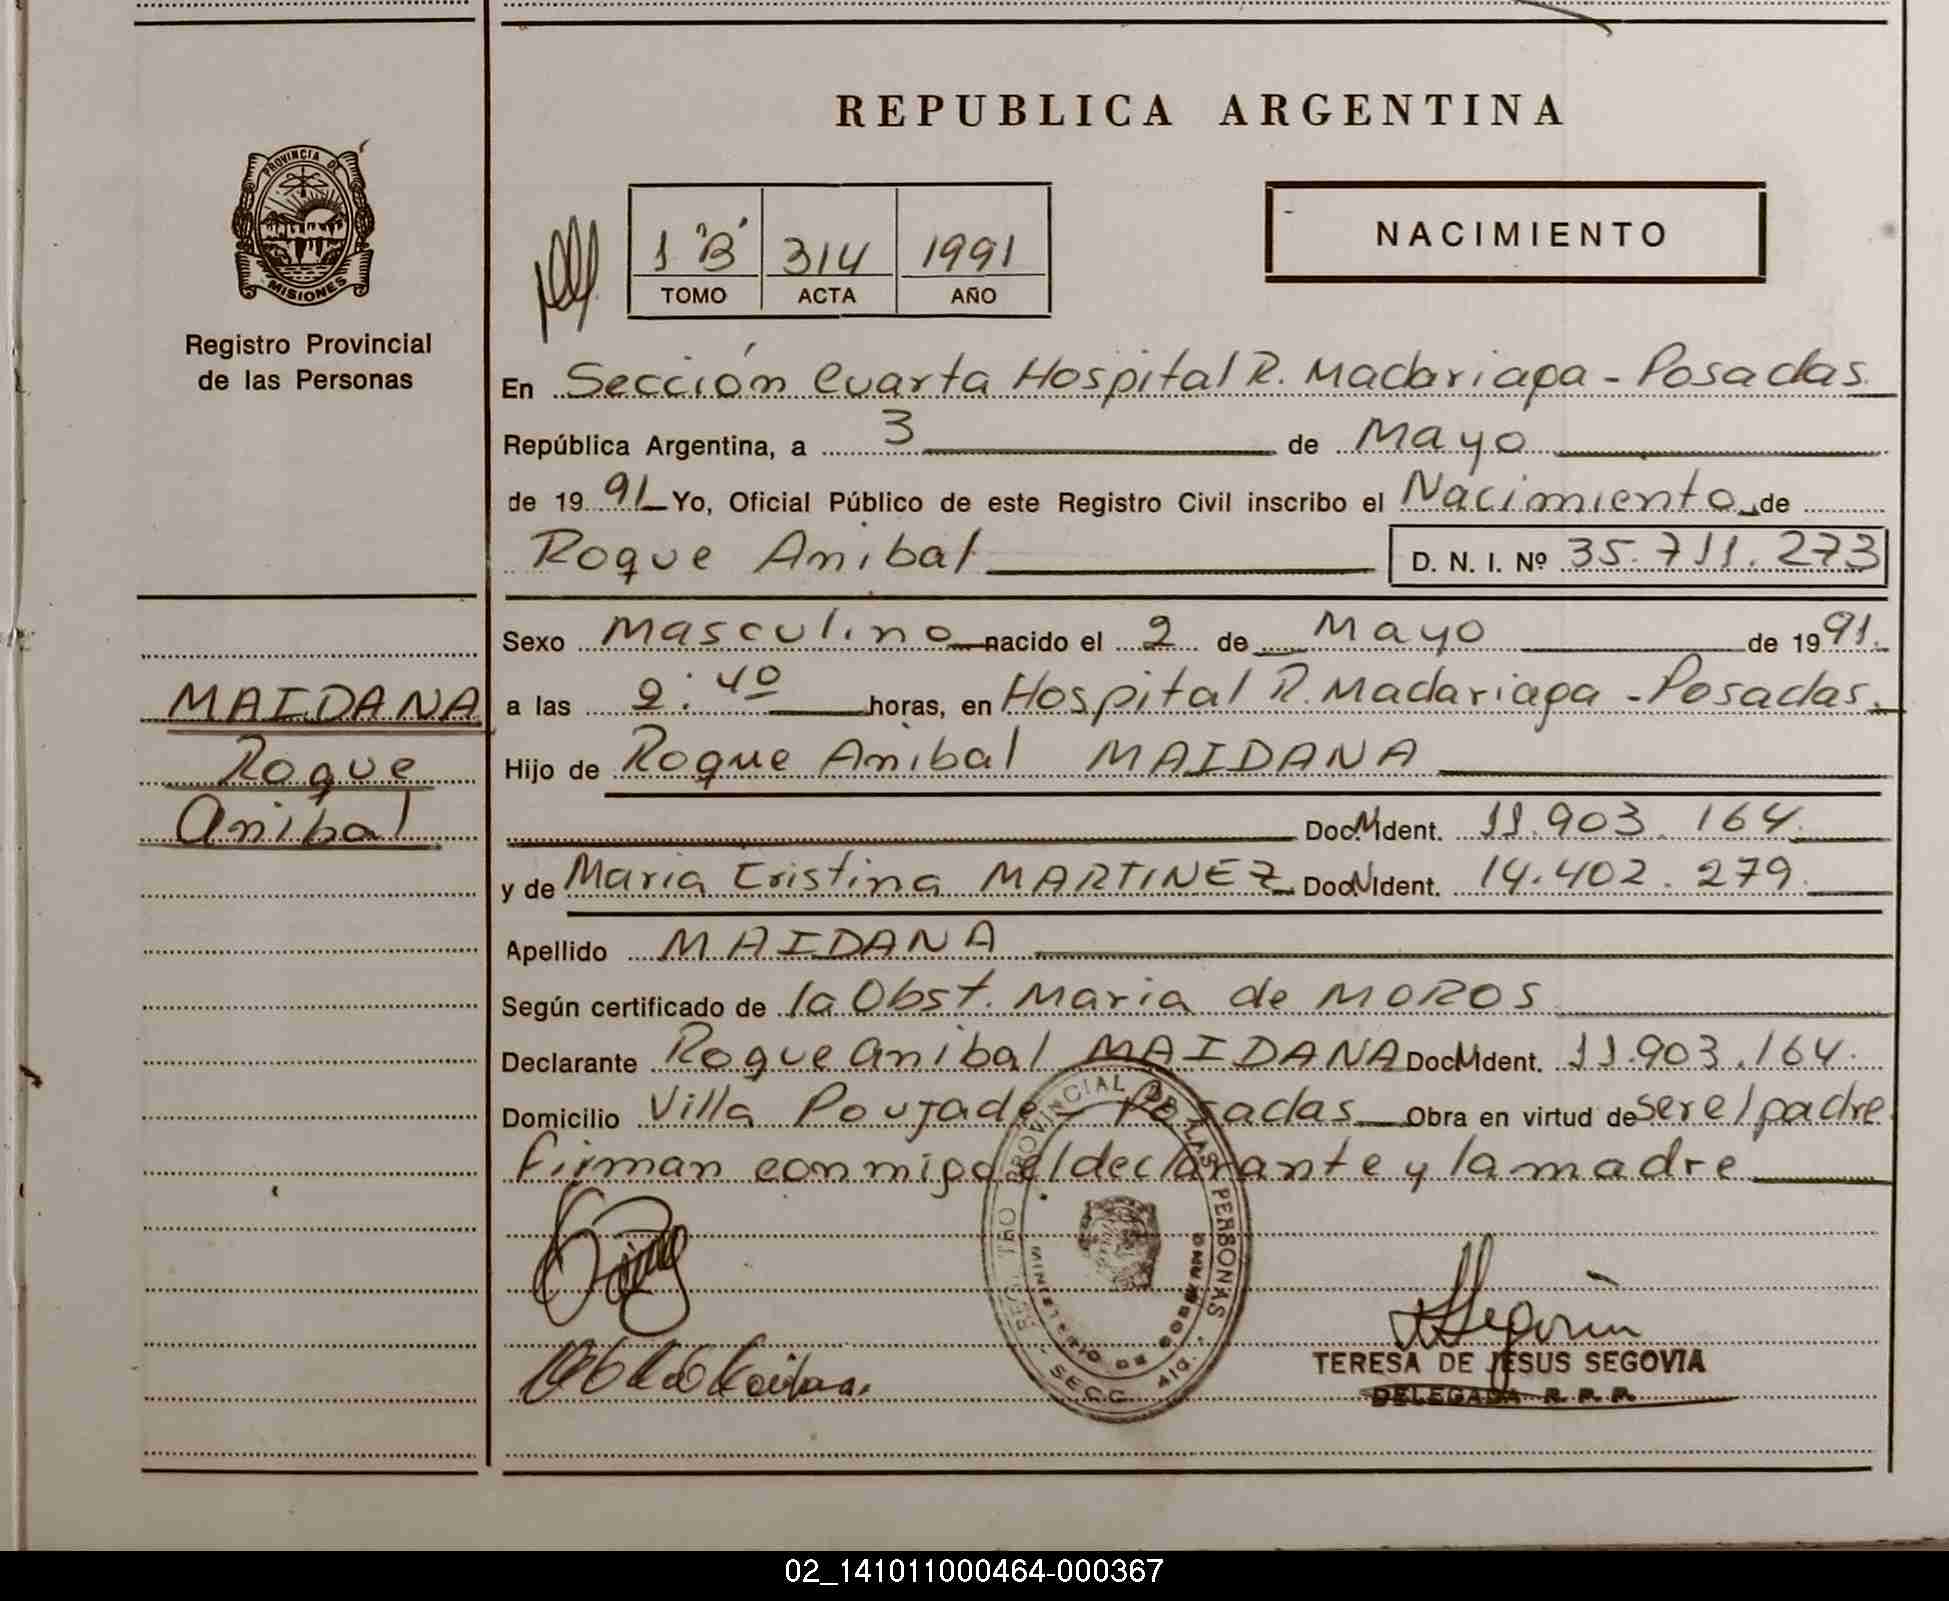 REPUBLICA ARGENTINA
PROVINCIA DE
MISIONES
Registro Provincial
de las Personas
1 "B" 314 1991
TOMO ACTA AÑO
NACIMIENTO
En Sección Cuarta Hospital R. Madariaga - Posadas
República Argentina, a 3 de Mayo
de 1991 Yo, Oficial Público de este Registro Civil inscribo el Nacimiento de
Roque Anibal D. N. I. Nº 35.711.273
Sexo Masculino nacido el 2 de Mayo de 1991.
a las 2:40 horas, en Hospital R. Madariaga - Posadas.
Hijo de Roque Anibal MAIDANA
Doc. Ident. 11.903.164
y de Maria Cristina MARTINEZ Doc. Ident. 14.402.279
Apellido MAIDANA
Según certificado de la Obst. Maria de MOROS
Declarante Roque Anibal MAIDANA Doc. Ident. 11.903.164.
Domicilio Villa Poujade - Posadas Obra en virtud de ser el padre
firman conmigo el declarante y la madre
MAIDANA
Roque
Anibal
REGISTRO PROVINCIAL DE LAS PERSONAS
MINISTERIO DE GOBIERNO
TERESA DE JESUS SEGOVIA
DELEGADA R. P. P.
02_141011000464-000367